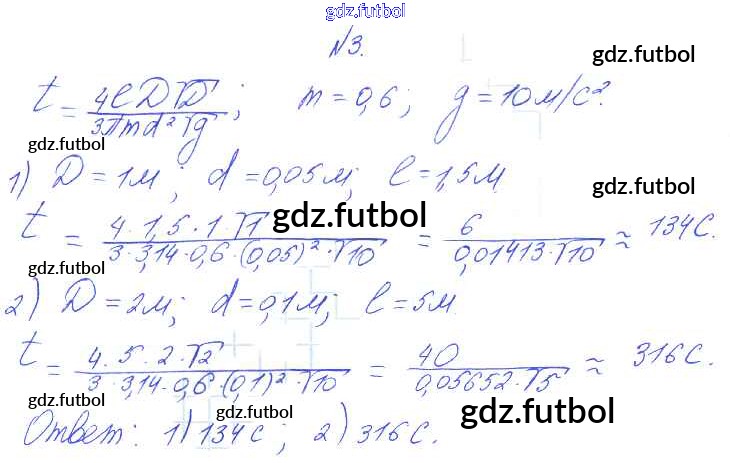 gdz.futbol
№3.
gdz.futbol
t = 4lD√D / 3πmd²√g ; m = 0,6 ; g = 10 м/с².
gdz.futbol gdz.futbol
1) D = 1м ; d = 0,05м ; l = 1,5м
gdz.futbol
t = 4·1,5·1·√1 / 3·3,14·0,6·(0,05)²·√10 = 6 / 0,01413·√10 ≈ 134с.
gdz.futbol
gdz.futbol
2) D = 2м ; d = 0,1м ; l = 5м
t = 4·5·2·√2 / 3·3,14·0,6·(0,1)²·√10 = 40 / 0,05652·√5 ≈ 316с.
gdz.futbol
gdz.futbol gdz.futbol
Ответ: 1) 134с ; 2) 316с.